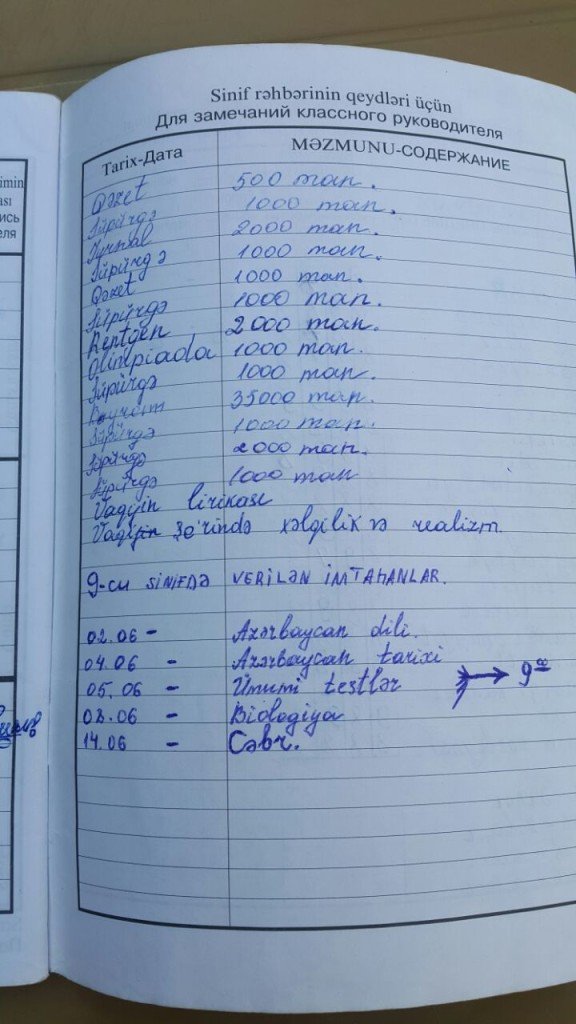 Sinif rəhbərinin qeydləri üçün
Для замечаний классного руководителя
Tarix-Дата MƏZMUNU-СОДЕРЖАНИЕ
Qəzet 500 man.
Süpürgə 1000 man.
Jurnal 2000 man.
Süpürgə 1000 man.
Qəzet 1000 man.
Süpürgə 1000 man.
Rentgen 2000 man.
Olimpiada 1000 man.
Süpürgə 1000 man.
Bayram 35000 man.
Süpürgə 1000 man.
Süpürgə 2000 man.
Süpürgə 1000 man
Vaqifin lirikası
Vaqifin şe'rində xəlqilik və realizm.
9-cu SİNİFDƏ VERİLƏN İMTAHANLAR.
02.06 - Azərbaycan dili.
04.06 - Azərbaycan tarixi
05.06 - Ümumi testlər
08.06 - Biologiya
14.06 - Cəbr.